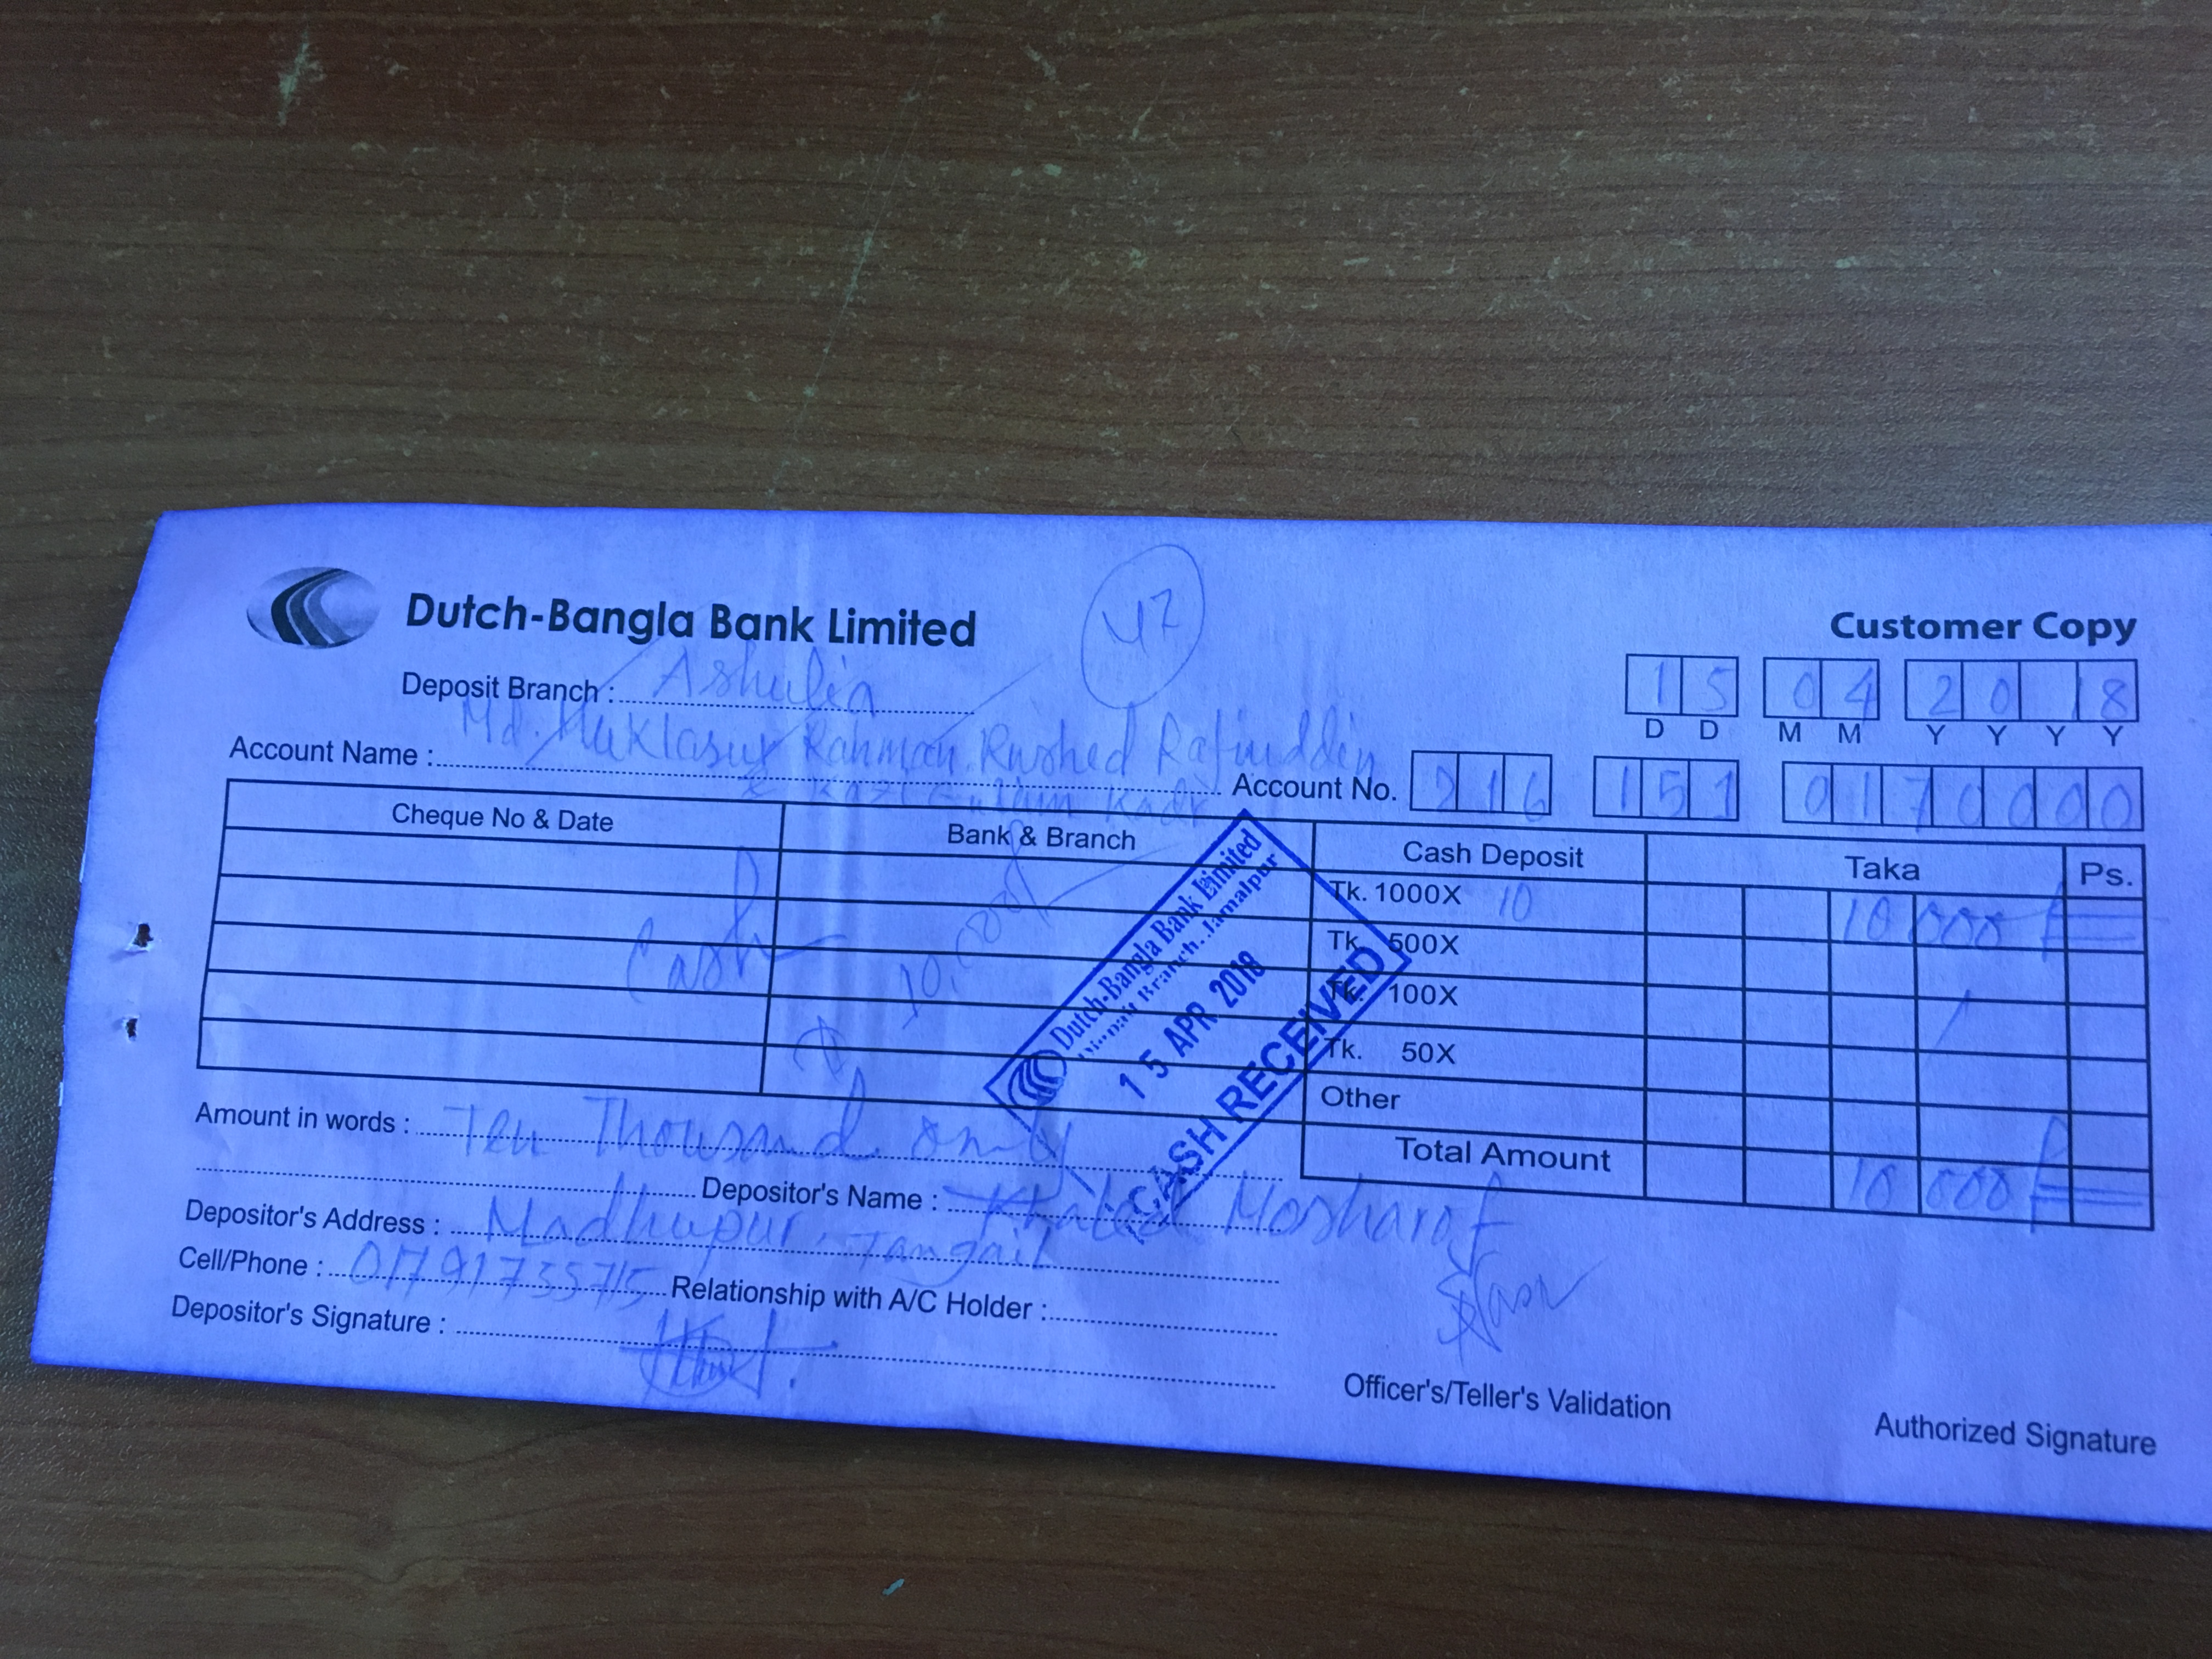 Dutch-Bangla Bank Limited
Customer Copy
Deposit Branch : Ashulia
47
15 04 2018
D D M M Y Y Y Y
Account Name : Md. Rahman. Rafiuddin
Account No. 216 151 0170000
Cheque No & Date Bank & Branch Cash Deposit Taka Ps.
Tk. 1000X 10 10 000
Tk. 500X
Cash 10,000/ Tk. 100X
Tk. 50X
Other
Total Amount 10 000
Dutch-Bangla Bank Limited
Branch, Jamalpur
15 APR 2018
CASH RECEIVED
Amount in words : Ten Thousand only
Depositor's Name :
Depositor's Address : Madhupur, Tangail
Cell/Phone : Relationship with A/C Holder :
Depositor's Signature :
Officer's/Teller's Validation
Authorized Signature